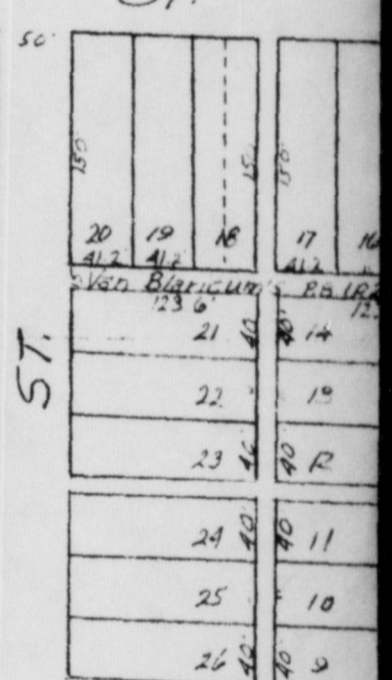 ST.
50'
150 150 150
20 19 18 17 16
41.2 41.2 41.2
Van Blaricum's
123 6
21 40 40 14
22 13
23 40 40 12
24 40 40 11
25 10
26 40 40 9
ST.